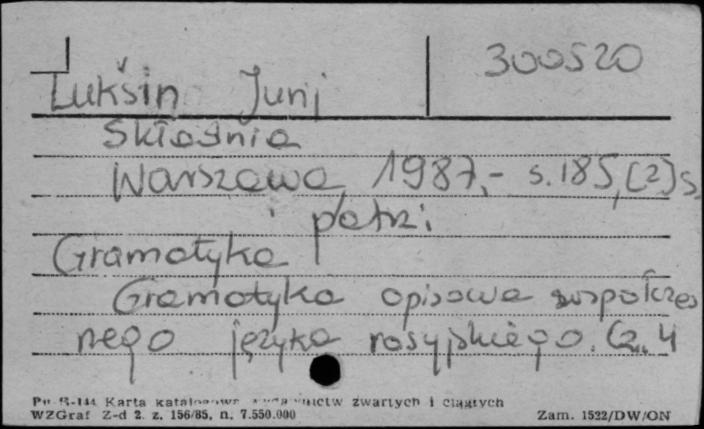 300520
Lukšin Jurij
Składnia
Warszawa 1987.- s.185,[2]s.
patrz:
Gramatyka
Gramatyka opisowa współczes
nego języka rosyjskiego. Cz. 4
Pu-B-144 Karta katalogowa wydawnictw zwartych i ciągłych
WZGraf Z-d 2. z. 156/85, n. 7.550.000
Zam. 1522/DW/ON